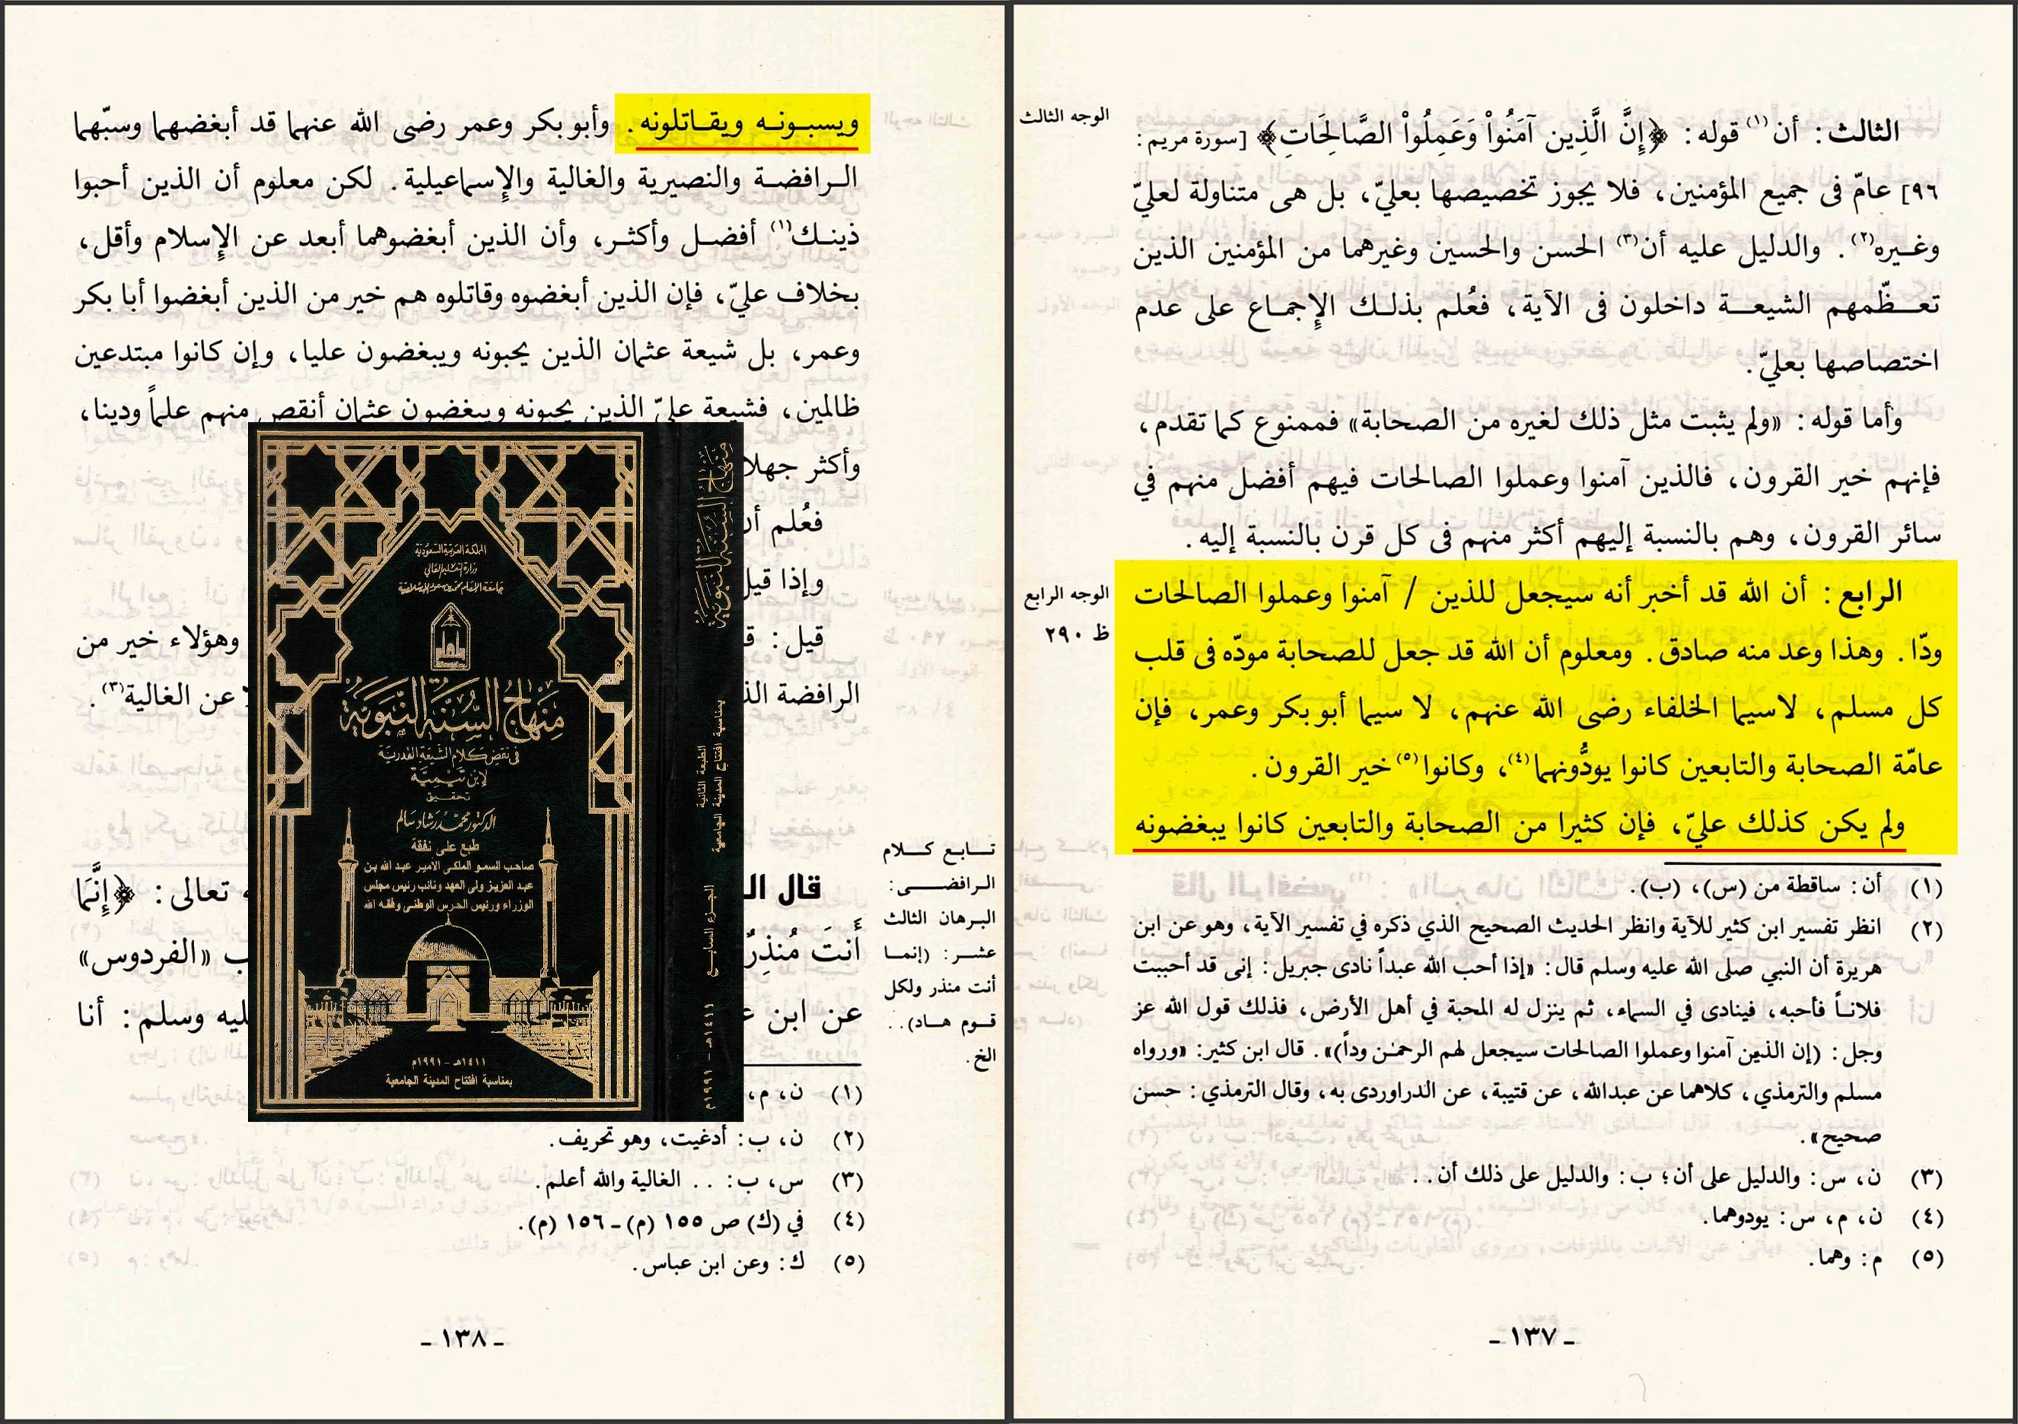 الوجه الثالث
الثالث: أن(١) قوله: ﴿إِنَّ الَّذِين آمَنُواْ وَعَمِلُواْ الصَّالِحَاتِ﴾ [سورة مريم:
٩٦] عامّ فى جميع المؤمنين، فلا يجوز تخصيصها بعليّ، بل هى متناولة لعليّ
وغيره(٢). والدليل عليه أن(٣) الحسن والحسين وغيرهما من المؤمنين الذين
تعظّمهم الشيعة داخلون فى الآية، فعُلم بذلك الإجماع على عدم
اختصاصها بعليّ.
وأما قوله: «ولم يثبت مثل ذلك لغيره من الصحابة» فممنوع كما تقدم،
فإنهم خير القرون، فالذين آمنوا وعملوا الصالحات فيهم أفضل منهم في
سائر القرون، وهم بالنسبة إليهم أكثر منهم فى كل قرن بالنسبة إليه.
الوجه الرابع
ظ ٢٩٠
الرابع: أن الله قد أخبر أنه سيجعل للذين / آمنوا وعملوا الصالحات
ودّا. وهذا وعد منه صادق. ومعلوم أن الله قد جعل للصحابة مودّه فى قلب
كل مسلم، لاسيما الخلفاء رضى الله عنهم، لا سيما أبو بكر وعمر، فإن
عامّة الصحابة والتابعين كانوا يودُّونهما(٤)، وكانوا(٥) خير القرون.
ولم يكن كذلك عليّ، فإن كثيرا من الصحابة والتابعين كانوا يبغضونه
(١) أن: ساقطة من (س)، (ب).
(٢) انظر تفسير ابن كثير للآية وانظر الحديث الصحيح الذي ذكره في تفسير الآية، وهو عن ابن
هريرة أن النبي صلى الله عليه وسلم قال: «إذا أحب الله عبداً نادى جبريل: إنى قد أحببت
فلاناً فأحبه، فينادى في السماء، ثم ينزل له المحبة في أهل الأرض، فذلك قول الله عز
وجل: (إن الذين آمنوا وعملوا الصالحات سيجعل لهم الرحمٰن وداً)». قال ابن كثير: «ورواه
مسلم والترمذي، كلاهما عن عبدالله، عن قتيبة، عن الدراوردى به، وقال الترمذي: حسن
صحيح».
(٣) ن، س: والدليل على أن؛ ب: والدليل على ذلك أن..
(٤) ن، م، س: يودوهما.
(٥) م: وهما.
- ١٣٧ -
ويسبونه ويقاتلونه. وأبو بكر وعمر رضى الله عنهما قد أبغضهما وسبّهما
الرافضة والنصيرية والغالية والإسماعيلية. لكن معلوم أن الذين أحبوا
ذينك(١) أفضل وأكثر، وأن الذين أبغضوهما أبعد عن الإسلام وأقل،
بخلاف عليّ، فإن الذين أبغضوه وقاتلوه هم خير من الذين أبغضوا أبا بكر
وعمر، بل شيعة عثمان الذين يحبونه ويبغضون عليا، وإن كانوا مبتدعين
ظالمين، فشيعة عليّ الذين يحبونه ويبغضون عثمان أنقص منهم علماً ودينا،
وأكثر جهلا
فعُلم أن
وإذا قيل
قيل: وهؤلاء خير من
الرافضة عن الغالية(٣).
قال تعالى: ﴿إِنَّمَا
أَنتَ مُنذِرٌ «الفردوس»
عن ابن عليه وسلم: أنا
تابع كلام
الرافضى:
البرهان الثالث
عشر: (إنما
أنت منذر ولكل
قوم هاد)..
الخ.
(١) ن، م،
(٢) ن، ب: أدغيت، وهو تحريف.
(٣) س، ب: .. الغالية والله أعلم.
(٤) في (ك) ص ١٥٥ (م) - ١٥٦ (م).
(٥) ك: وعن ابن عباس.
- ١٣٨ -
المملكة العربية السعودية
وزارة التعليم العالي
جامعة الإمام محمد بن سعود الإسلامية
منهاج السنة النبوية
في نقض كلام الشيعة القدرية
لابن تيمية
تحقيق
الدكتور محمد رشاد سالم
طبع على نفقة
صاحب السمو الملكى الأمير عبد الله بن
عبد العزيز ولى العهد ونائب رئيس مجلس
الوزراء ورئيس الحرس الوطنى وفقه الله
١٤١١هـ - ١٩٩١م
بمناسبة افتتاح المدينة الجامعية
منهاج السنة النبوية
بمناسبة افتتاح المدينة الجامعية
الطبعة الثانية
الجزء السابع
١٤١١هـ - ١٩٩١م